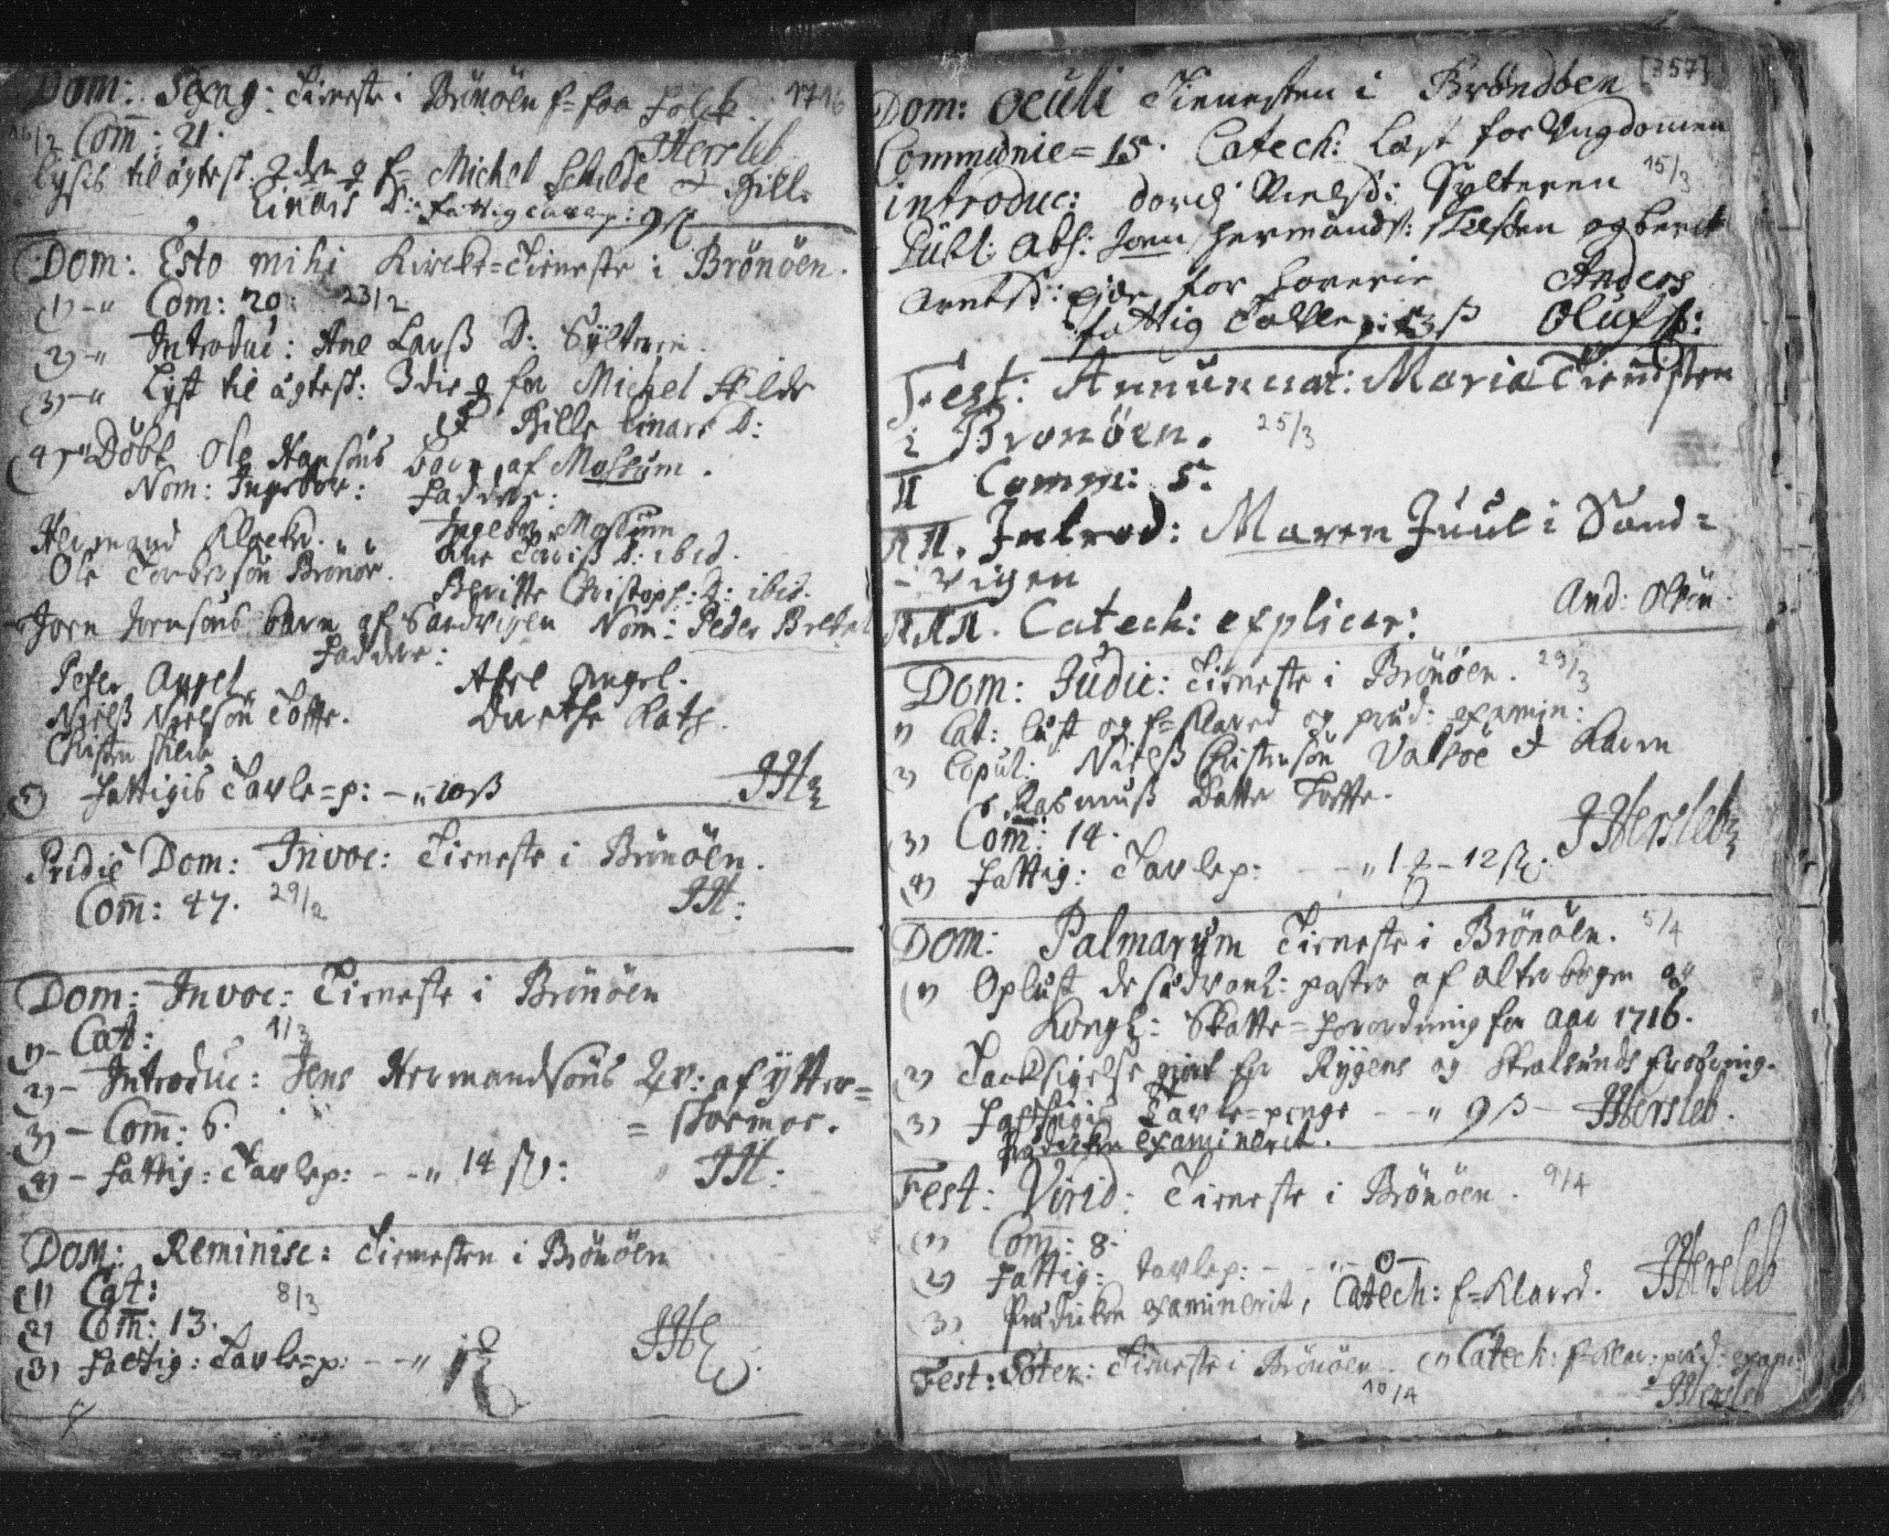 Dom: Sexag: Tieneste i Brönöen f= faa Folck. 1716
16/2 Com̄: 21.
JHersleb
Lysis til ägtesk. 2den g f= Michel Schilde & Bille
Einars D: fattig tavlep: 9 ß
Dom: Esto mihi Kircke=Tieneste i Brönöen.
(1) -" Com: 20: 23/2
(2) -" Introduc: Ane Larß D: Sylteren.
(3) -" Lyst til ägtesk: 3die g for Michel Skilde
& Bille Einars D:
(4) -" Döbt Ole Hansöns barn af Mossum.
Nom: Ingebor: Faddere:
Hermand Klocker. Ingebor Mossum
Ole Torbersön Brönöe. Ane Joniß D: ibid.
Beritte Christoph: D: ibid.
Jorn Jornsöns barn af Sandvigen Nom: Peder Bredal
Faddere:
Peter Angel Abel Angel.
Nielß Nielsön Tofte. Dorthe Kath.
Christen Skilde
(5) Fattigis Tavle=p: -" 10 ß JH
Pridie Dom: Invoc: Tieneste i Brönöen.
Com̄: 47. 29/2 JH:
Dom: Invoc: Tieneste i Brönöen
(1) - Cat: 1/3
(2) - Introduc: Jens Hermandsöns Qv: af ytter=
(3) - Com̄: 6. = Thormoe.
(4) - Fattig: Tavlep: - -" 14 ß: JH:
Dom: Reminisc: Tienesten i Brönöen
(1) Cat: 8/3
(2) Com̄: 13.
(3) Fattig: Tavle=p: - -" JH
[357]
Dom: Oculi Tienesten i Bröndöen
Communic= 15. Catech: Læst for Ungdomen
introduc: dorch Nielsd: Sylteren 15/3
Publ: Abs: Joen Hermands: og berit
Arntsd: for horerie Anders
fattig Tavle p: 3 ß Olufs:
Fest: Annunciat: Mariæ Tienesten
i Brönöen. 25/3
II Comm: 5.
Introd: Maren Juul i Sand=
- vigen
Catech: explicer: And: Olsön.
Dom: Judic: Tieneste i Brönöen. 29/3
(1) Cat: læst og f=klared og præd: examin:
(2) Copul: Nielß Christensön Valsöe & Karen
Rasmuß Datter Tofte.
(3) Com̄: 14. JHersleb
(4) Fattig: Tavlep: - -" 1 - 12 ß.
Dom: Palmarum Tieneste i Brönöen. 5/4
(1) Oplæst de sædvanl: poster af alterbogen og
Kongl: Skatte=forordning for aar 1716.
(2) Tacksigelse giort for Rygens og Stralsunds erobring.
(3) Fattigis Tavle=penge - -" 9 ß - JHersleb.
Prædicken examinerit.
Fest: Virid: Tieneste i Brönöen. 9/4
(1) Com̄: 8.
(2) Fattig: tavlep: - - 0 - JHersleb
(3) Prædicken examinerit, Catech: f=klared.
Fest: Soter: Tieneste i Brönöen - (1) Catech: f=klar: præd: exam:
10/4 JHersleb